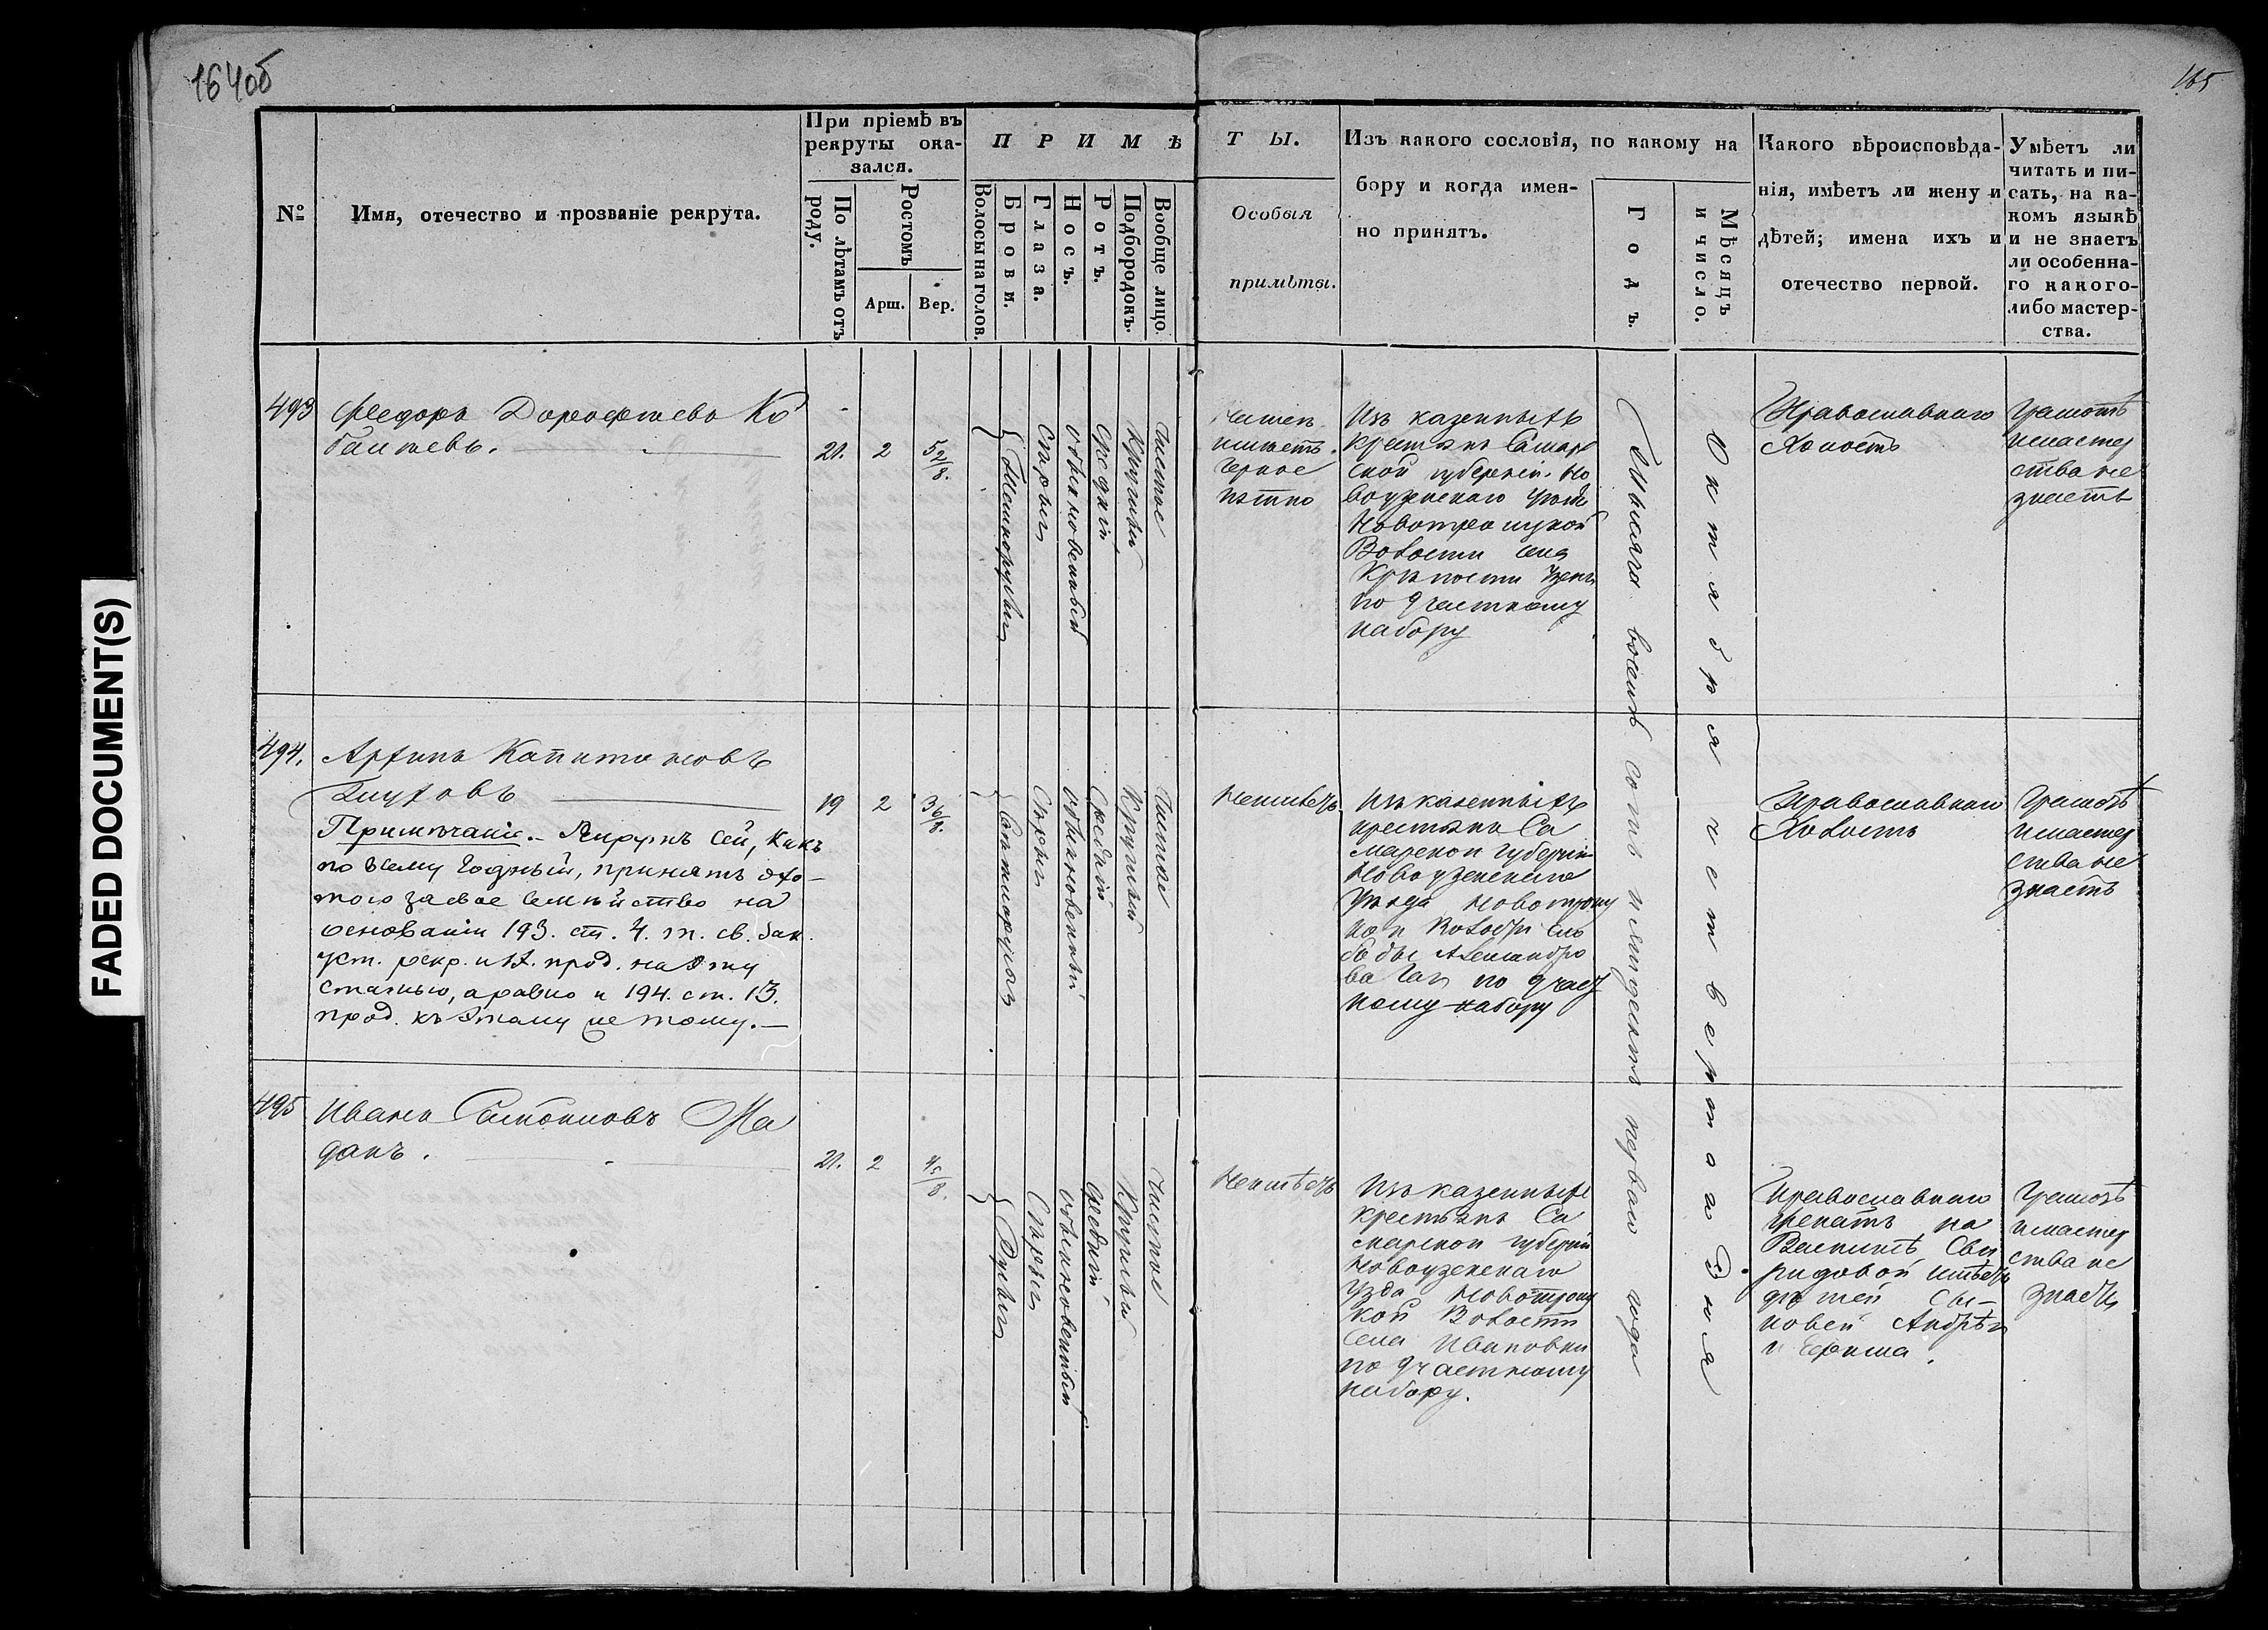 164об
165
FADED DOCUMENT(S)
№
Имя, отечество и прозваніе рекрута.
При пріемѣ въ
рекруты ока-
зался.
По лѣтамъ отъ
роду.
Ростомъ
Арш.
Вер.
ПРИМѢ
Волосы на голов.
Брови.
Глаза.
Носъ.
Ротъ.
Подбородокъ.
Вообще лицо.
ТЫ.
Особыя
примѣты.
Изъ какого сословія, по какому на
бору и когда имен-
но принятъ.
Годъ.
Мѣсяцъ
и число.
Какого вѣроисповѣда-
нія, имѣетъ ли жену и
дѣтей; имена ихъ и
отечество первой.
Умѣетъ ли
читать и пи-
сать, на ка-
комъ языкѣ
и не знаетъ
ли особенна-
го какого-
либо мастер-
ства.
493
Федоръ Дорофѣевъ Ко
21. 2 5 2/8.
Сѣрыя
обыкновенный
средній
круглый
чистое
имѣетъ
черное
пятно
Изъ казенныхъ
крестьянъ Самар
ской губерніи Но
воузенскаго уѣзда
Новотроицкой
Волости села
Крѣпости Узень
по 9 частному
набору
Тысяча восемь сотъ пятьдесятъ перваго года
Октября четвертаго дня
Православнаго
Холостъ
грамотѣ
и мастер
ства не
знаетъ
494.
Архипъ Капитоновъ
Глуховъ
19 2 3 6/8.
Примѣчаніе. – Рекрутъ сей, какъ
по всему годный, принятъ охо-
тою за свое семѣйство на
основаніи 193. ст. 4. т. св. зак.
уст. рекр. и прод. на эту
статью, а равно и 194. ст. 13.
прод. къ этому же тому. –
Сѣрыя
обыкновенный
средній
круглый
чистое
Неимѣетъ
Изъ казенныхъ
крестьянъ Са
марской губерніи
Новоузенскаго
Уѣзда Новотроиц
кой Волости Сло
боды Александро
ва Гая по 9 част
ному набору
Православнаго
Холостъ
Грамотѣ
и мастер
ства не
знаетъ
495
Иванъ Самойловъ Ма
данъ.
21. 2 4 5/8.
Русыя
Сѣрыя
обыкновенный
средній
круглый
чистое
Неимѣетъ
Изъ казенныхъ
крестьянъ Са
марской губерніи
Новоузенскаго
Уѣзда Новотроиц
кой Волости
Села Ивановки
по 9 частному
набору.
Православнаго
женатъ на
Василисѣ Сви
ридовой имѣетъ
дѣтей сы-
новей Андрѣя
и Ефима.
Грамотѣ
и мастер
ства не
знаетъ